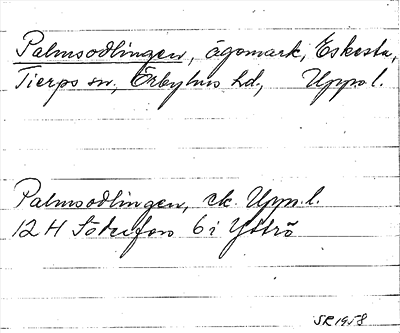 Palmsodlingen, ägomark, Eskesta,
Tierps sn, Örbyhus hd, Uppl.
Palmsodlingen, ek. Uppl.
12 H Söderfors 6 i Yttrö
SR 1958